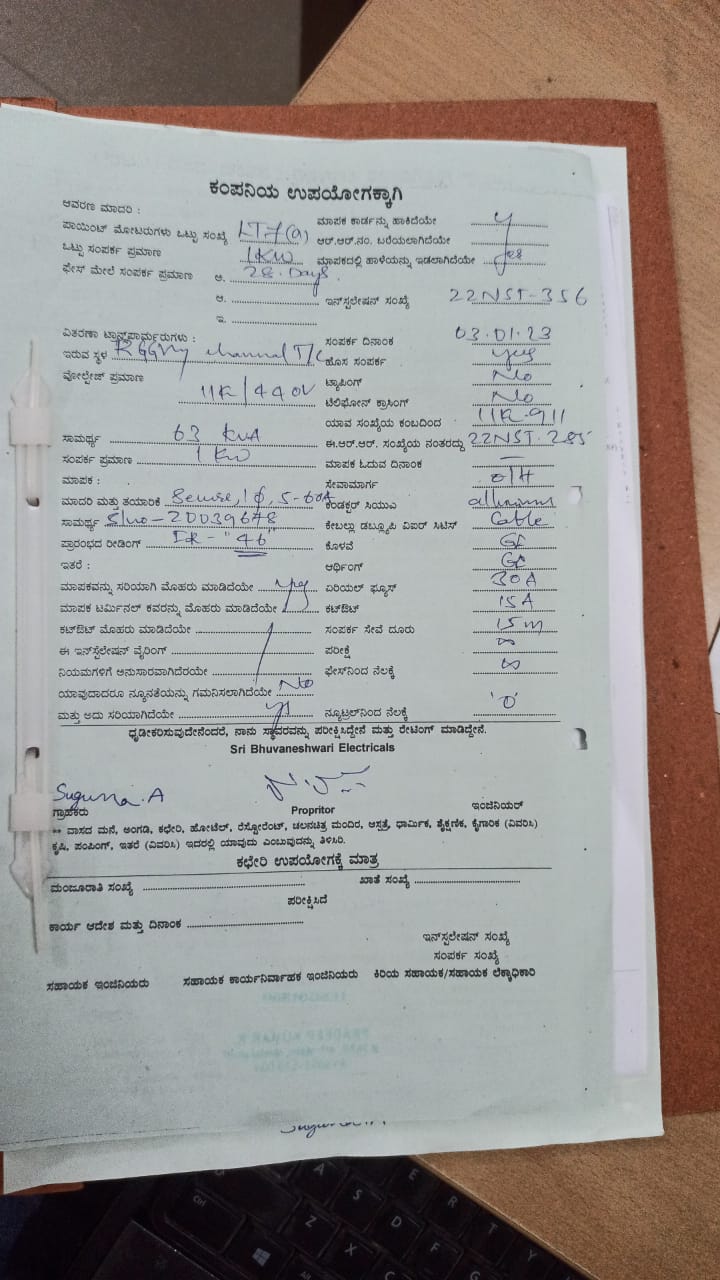 ಕಂಪನಿಯ ಉಪಯೋಗಕ್ಕಾಗಿ
ಆವರಣ ಮಾದರಿ :
ಮಾಪಕ ಕಾರ್ಡನ್ನು ಹಾಕಿದೆಯೇ y
ಪಾಯಿಂಟ್ ಮೋಟರುಗಳು ಒಟ್ಟು ಸಂಖ್ಯೆ LT7(a) ಆರ್.ಆರ್.ನಂ. ಬರೆಯಲಾಗಿದೆಯೇ
ಒಟ್ಟು ಸಂಪರ್ಕ ಪ್ರಮಾಣ 1KW ಮಾಪಕದಲ್ಲಿ ಹಾಳೆಯನ್ನು ಇಡಲಾಗಿದೆಯೇ yes
ಫೇಸ್ ಮೇಲೆ ಸಂಪರ್ಕ ಪ್ರಮಾಣ ಅ. 28 Days
ಆ. ಇನ್‌ಸ್ಟಲೇಷನ್ ಸಂಖ್ಯೆ 22NST-356
ಇ.
ವಿತರಣಾ ಟ್ರಾನ್ಸ್‌ಫಾರ್ಮರುಗಳು : ಸಂಪರ್ಕ ದಿನಾಂಕ 03.01.23
ಇರುವ ಸ್ಥಳ RGGVY channal T/C ಹೊಸ ಸಂಪರ್ಕ yes
ವೋಲ್ಟೇಜ್ ಪ್ರಮಾಣ ಟ್ಯಾಪಿಂಗ್ No
11K/440V ಟೆಲಿಫೋನ್ ಕ್ರಾಸಿಂಗ್ No
ಯಾವ ಸಂಖ್ಯೆಯ ಕಂಬದಿಂದ 11K.911
ಸಾಮರ್ಥ್ಯ 63 KVA ಈ.ಆರ್.ಆರ್. ಸಂಖ್ಯೆಯ ನಂತರದ್ದು 22NST.285
ಸಂಪರ್ಕ ಪ್ರಮಾಣ 1 KW ಮಾಪಕ ಓದುವ ದಿನಾಂಕ —
ಮಾಪಕ : ಸೇವಾಮಾರ್ಗ o/H
ಮಾದರಿ ಮತ್ತು ತಯಾರಿಕೆ 1φ, 5-60A ಕಂಡಕ್ಟರ್ ಸಿಯುಎ
ಸಾಮರ್ಥ್ಯ Slno-20039678 ಕೇಬಲ್ಲು ಡಬ್ಲ್ಯೂಪಿ ವಿಐರ್ ಸಿಟಿಸ್ Cable
ಪ್ರಾರಂಭದ ರೀಡಿಂಗ್ IR-"46" ಕೊಳವೆ GI
ಇತರೆ : ಆರ್ಥಿಂಗ್ GI
ಮಾಪಕವನ್ನು ಸರಿಯಾಗಿ ಮೊಹರು ಮಾಡಿದೆಯೇ yes ಏರಿಯಲ್ ಫ್ಯೂಸ್ 30A
ಮಾಪಕ ಟರ್ಮಿನಲ್ ಕವರನ್ನು ಮೊಹರು ಮಾಡಿದೆಯೇ ಕಟ್‌ಔಟ್ 15A
ಕಟ್‌ಔಟ್ ಮೊಹರು ಮಾಡಿದೆಯೇ ಸಂಪರ್ಕ ಸೇವೆ ದೂರು 15m
ಈ ಇನ್‌ಸ್ಟಲೇಷನ್ ವೈರಿಂಗ್ ಪರೀಕ್ಷೆ ∞
ನಿಯಮಗಳಿಗೆ ಅನುಸಾರವಾಗಿದೆರಯೇ ಫೇಸ್‌ನಿಂದ ನೆಲಕ್ಕೆ ∞
ಯಾವುದಾದರೂ ನ್ಯೂನತೆಯನ್ನು ಗಮನಿಸಲಾಗಿದೆಯೇ No
ಮತ್ತು ಅದು ಸರಿಯಾಗಿದೆಯೇ ys ನ್ಯೂಟ್ರಲ್‌ನಿಂದ ನೆಲಕ್ಕೆ '0'
ಧೃಡೀಕರಿಸುವುದೇನೆಂದರೆ, ನಾನು ಸ್ಥಾವರವನ್ನು ಪರೀಕ್ಷಿಸಿದ್ದೇನೆ ಮತ್ತು ರೇಟಿಂಗ್ ಮಾಡಿದ್ದೇನೆ.
Sri Bhuvaneshwari Electricals
Suguna.A
ಗ್ರಾಹಕರು Propritor ಇಂಜಿನಿಯರ್
** ವಾಸದ ಮನೆ, ಅಂಗಡಿ, ಕಛೇರಿ, ಹೋಟೆಲ್, ರೆಸ್ಟೋರೆಂಟ್, ಚಲನಚಿತ್ರ ಮಂದಿರ, ಆಸ್ಪತ್ರೆ, ಧಾರ್ಮಿಕ, ಶೈಕ್ಷಣಿಕ, ಕೈಗಾರಿಕ (ವಿವರಿಸಿ)
ಕೃಷಿ, ಪಂಪಿಂಗ್, ಇತರೆ (ವಿವರಿಸಿ) ಇದರಲ್ಲಿ ಯಾವುದು ಎಂಬುವುದನ್ನು ತಿಳಿಸಿರಿ.
ಕಛೇರಿ ಉಪಯೋಗಕ್ಕೆ ಮಾತ್ರ
ಮಂಜೂರಾತಿ ಸಂಖ್ಯೆ ಖಾತೆ ಸಂಖ್ಯೆ
ಪರೀಕ್ಷಿಸಿದೆ
ಕಾರ್ಯ ಆದೇಶ ಮತ್ತು ದಿನಾಂಕ
ಇನ್‌ಸ್ಪಲೇಷನ್ ಸಂಖ್ಯೆ
ಸಂಪರ್ಕ ಸಂಖ್ಯೆ
ಸಹಾಯಕ ಇಂಜಿನಿಯರು ಸಹಾಯಕ ಕಾರ್ಯನಿರ್ವಾಹಕ ಇಂಜಿನಿಯರು ಕಿರಿಯ ಸಹಾಯಕ/ಸಹಾಯಕ ಲೆಕ್ಕಾಧಿಕಾರಿ
Ctrl
A
S
D
F
Z
X
C
E
R
T
Y